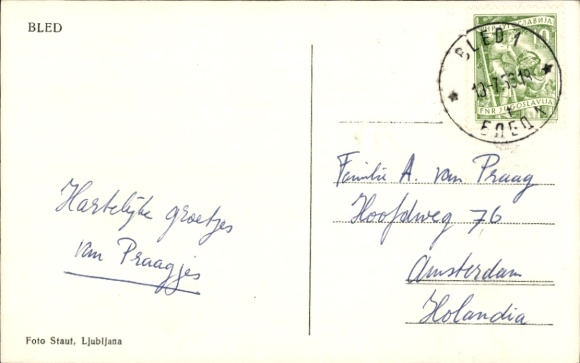 BLED
BLED 1
13-7.53.19
БЛЕД
FNR JUGOSLAVIJA
Familie A. van Praag
Hoofdweg 76
Amsterdam
Holandia
Hartelijke groetjes
van Praagjes
Foto Staut, Ljubljana